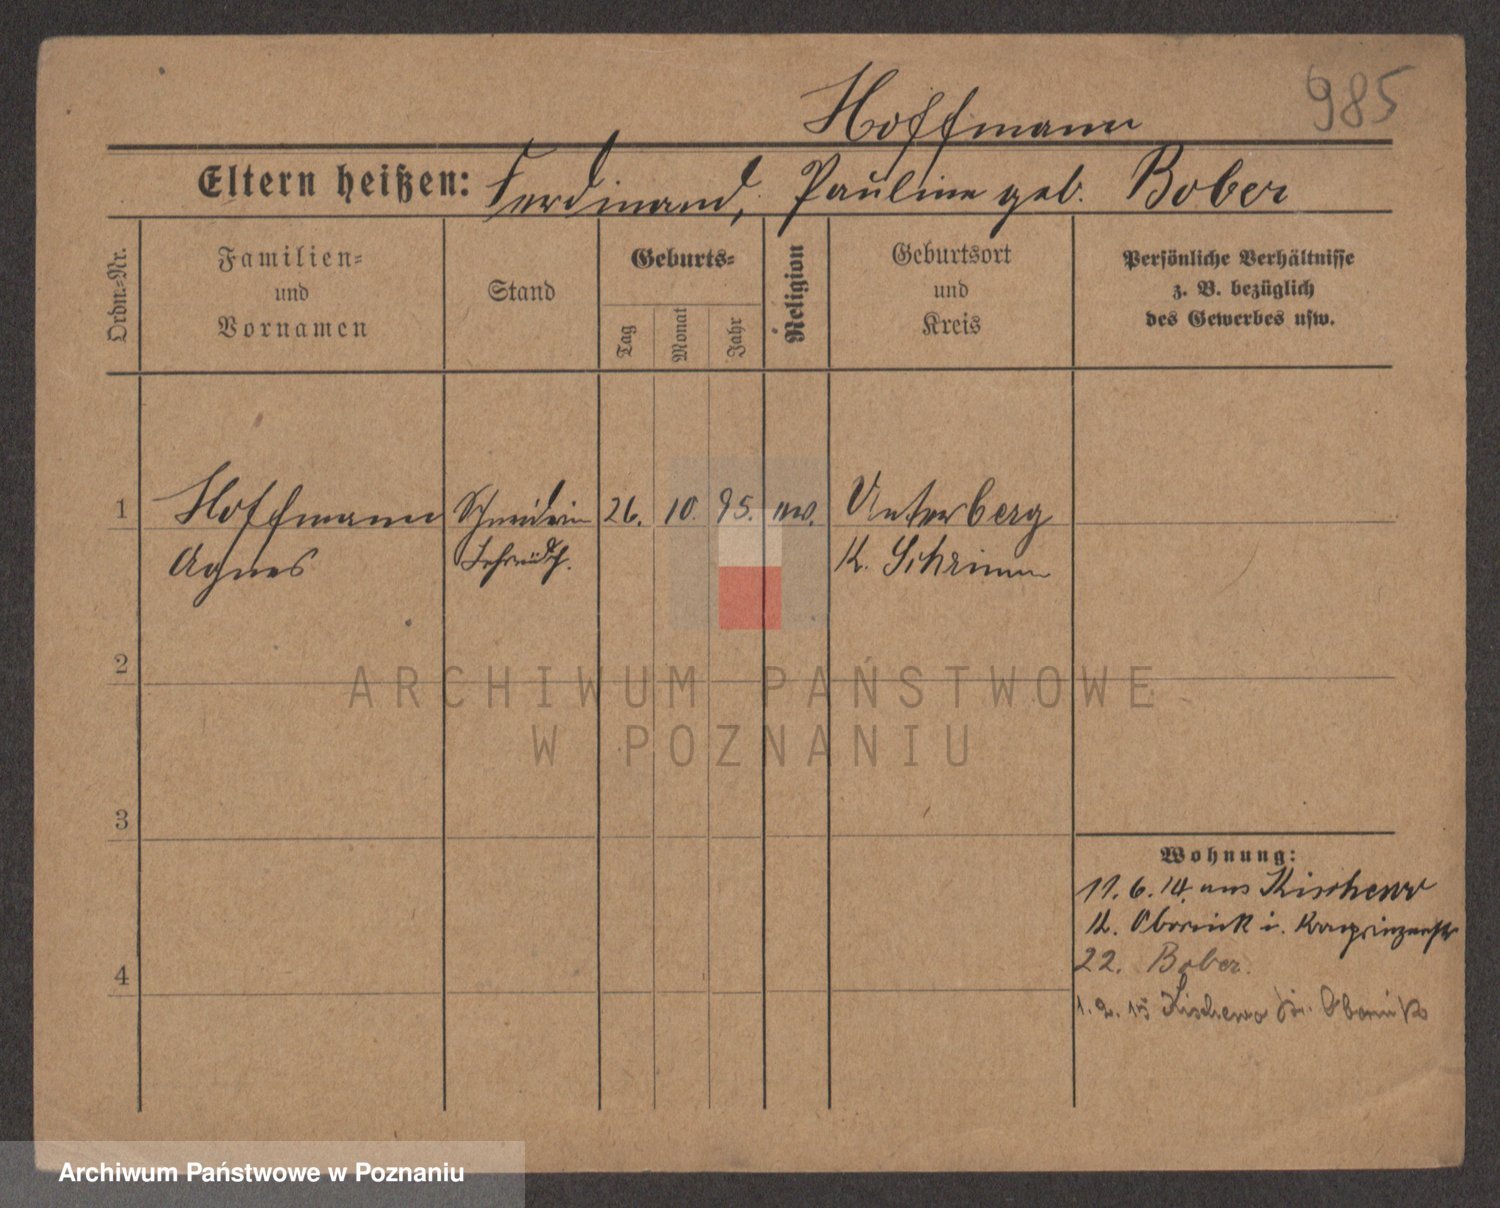 985
Hoffmann
Eltern heißen: Ferdinand, Pauline geb. Bober
Ordn.-Nr.
Familien-
und
Vornamen
Stand
Geburts-
Tag
Monat
Jahr
Religion
Geburtsort
und
Kreis
Persönliche Verhältnisse
z. B. bezüglich
des Gewerbes usw.
1 Hoffmann Schneiderin 26. 10. 95. ev. Unterberg
Agnes K. Schrimm
2
3
4
Wohnung:
11. 6. 14. aus Kischewo
K. Obornik i. Kronprinzenstr
22. Bober.
1. 2. 15 Kischewo Kr. Obornik
ARCHIWUM PAŃSTWOWE
W POZNANIU
Archiwum Państwowe w Poznaniu